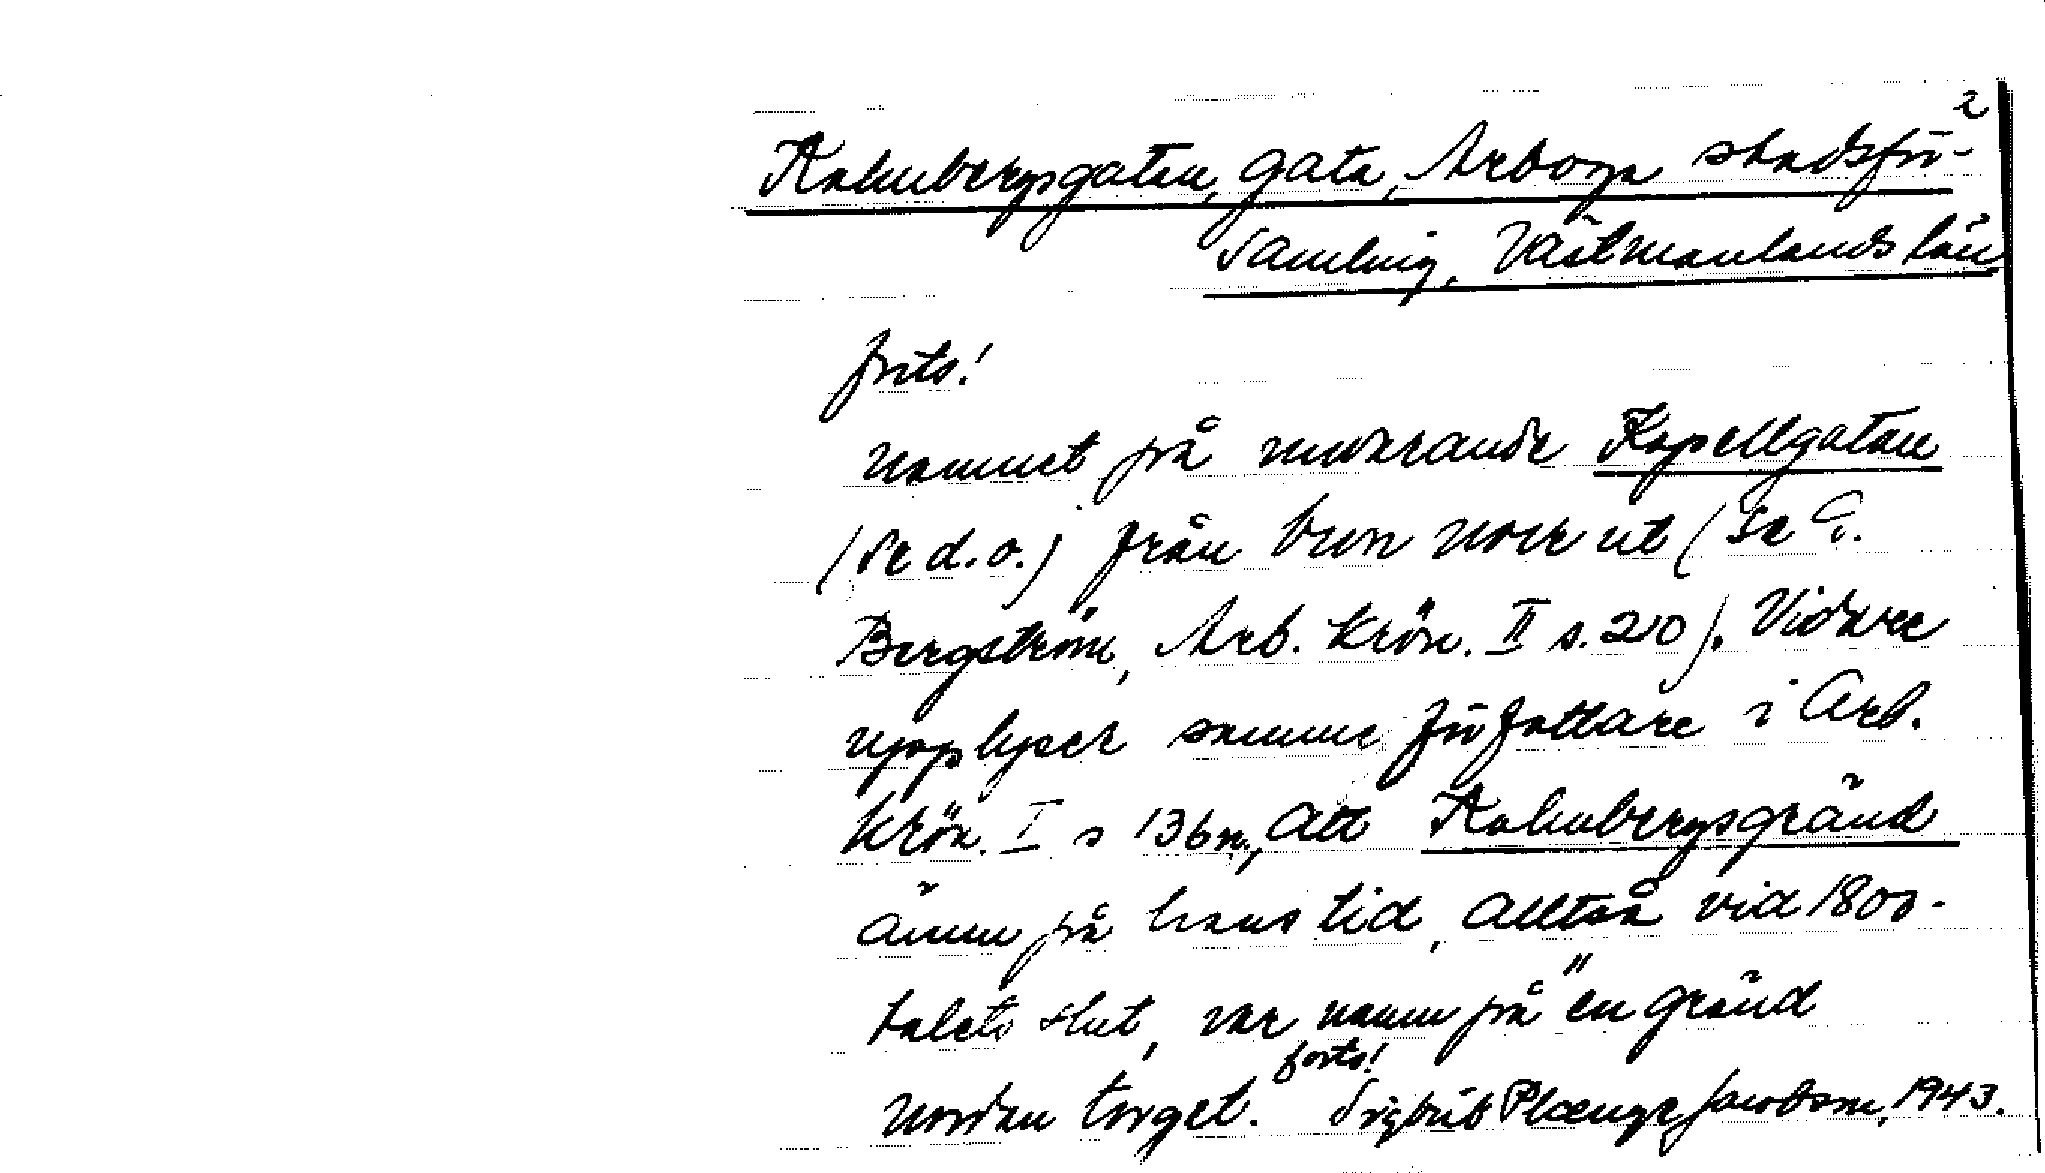 2
Kakubergsgatan, gata, Arboga stadsför-
samling, Västmanlands län
forts!
namnet på nuvarande Kapellgatan
(se d.o.) från bron norr ut (se G.
Bergström, Arb. Krön. II s. 210). Vidare
upplyser samme författare i Arb.
Krön. I s 136 n, att Kakubergsgränd
ännu på hans tid, alltså vid 1800-
talets slut, var namn på "en gränd
nordan torget. forts! Sigbrit Plænge Jacobson, 1943.